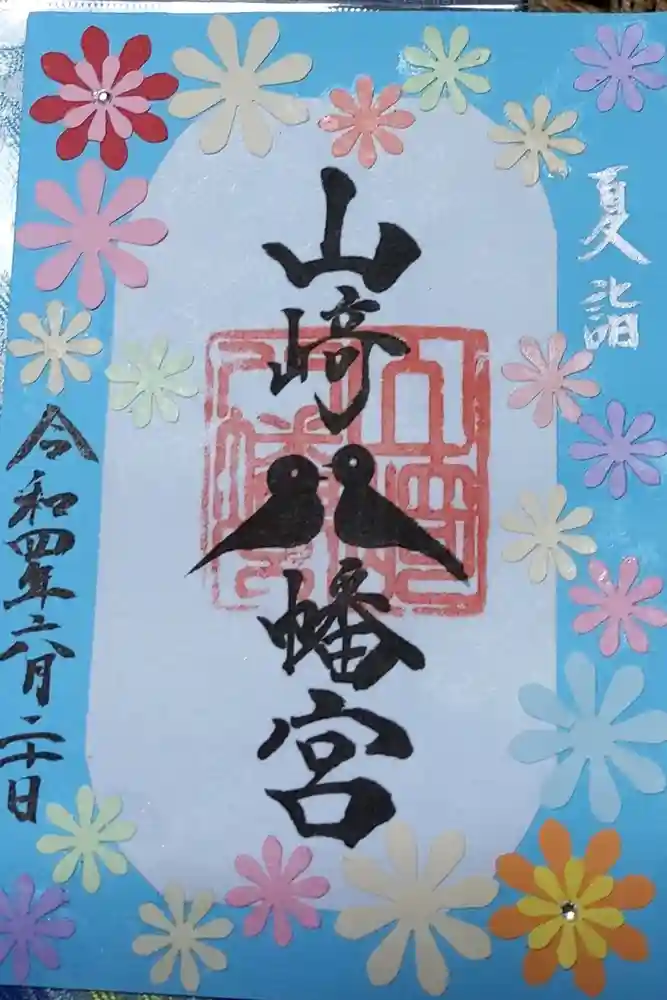 夏詣
山崎八幡宮
令和四年六月二十日